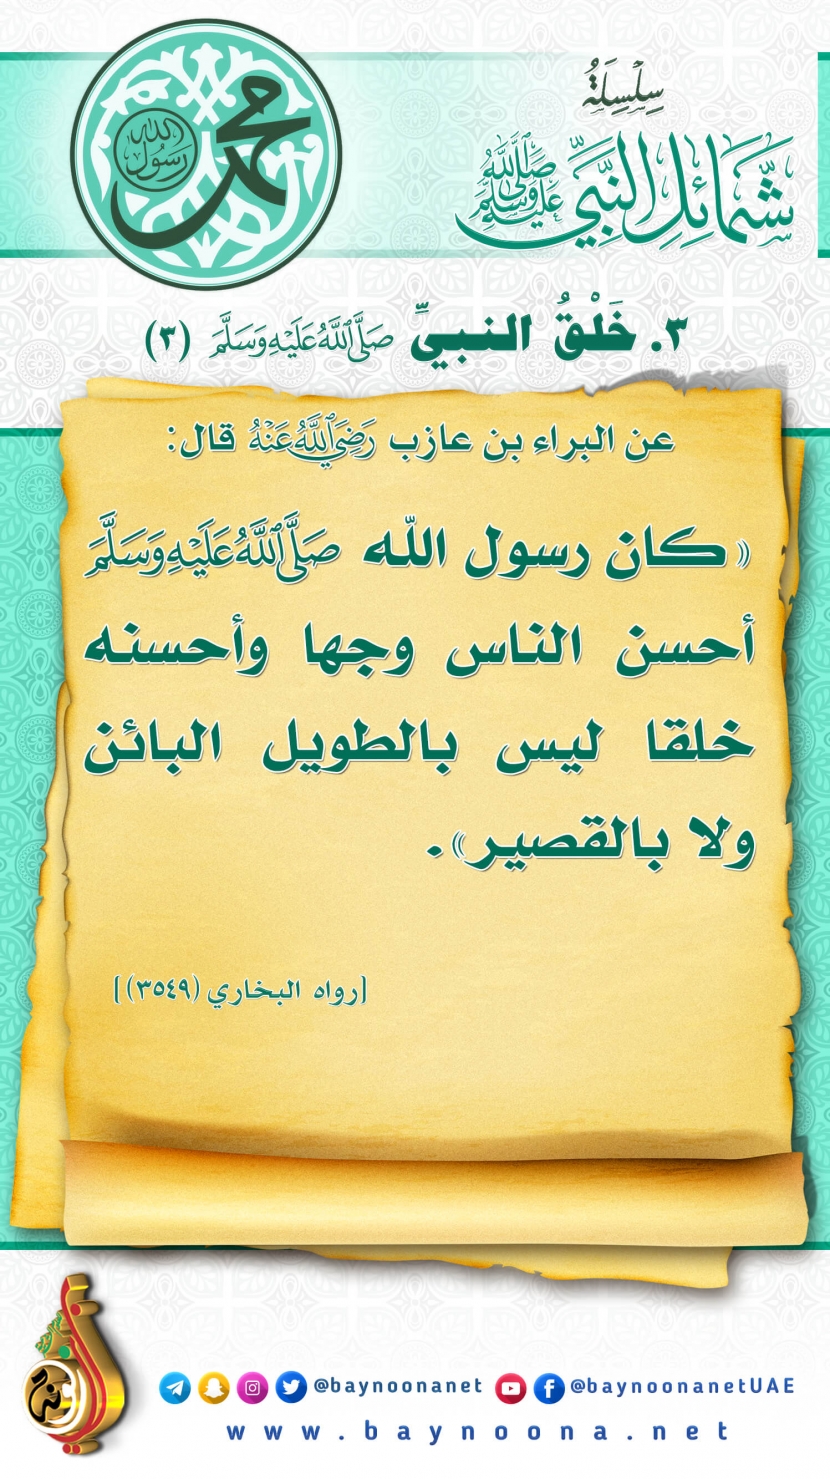 محمد
رسول الله
سِلْسِلَةُ
شَمَائِلِ النَّبِيِّ صَلَّى اللَّهُ عَلَيْهِ وَسَلَّمَ
٣. خَلْقُ النبيِّ صَلَّى اللَّهُ عَلَيْهِ وَسَلَّمَ (٣)
عن البراء بن عازب رَضِيَ اللَّهُ عَنْهُ قال:
«كان رسول الله صَلَّى اللَّهُ عَلَيْهِ وَسَلَّمَ
أحسن الناس وجها وأحسنه
خلقا ليس بالطويل البائن
ولا بالقصير».
[رواه البخاري (٣٥٤٩)]
@baynoonanet @baynoonanetUAE
www.baynoona.net